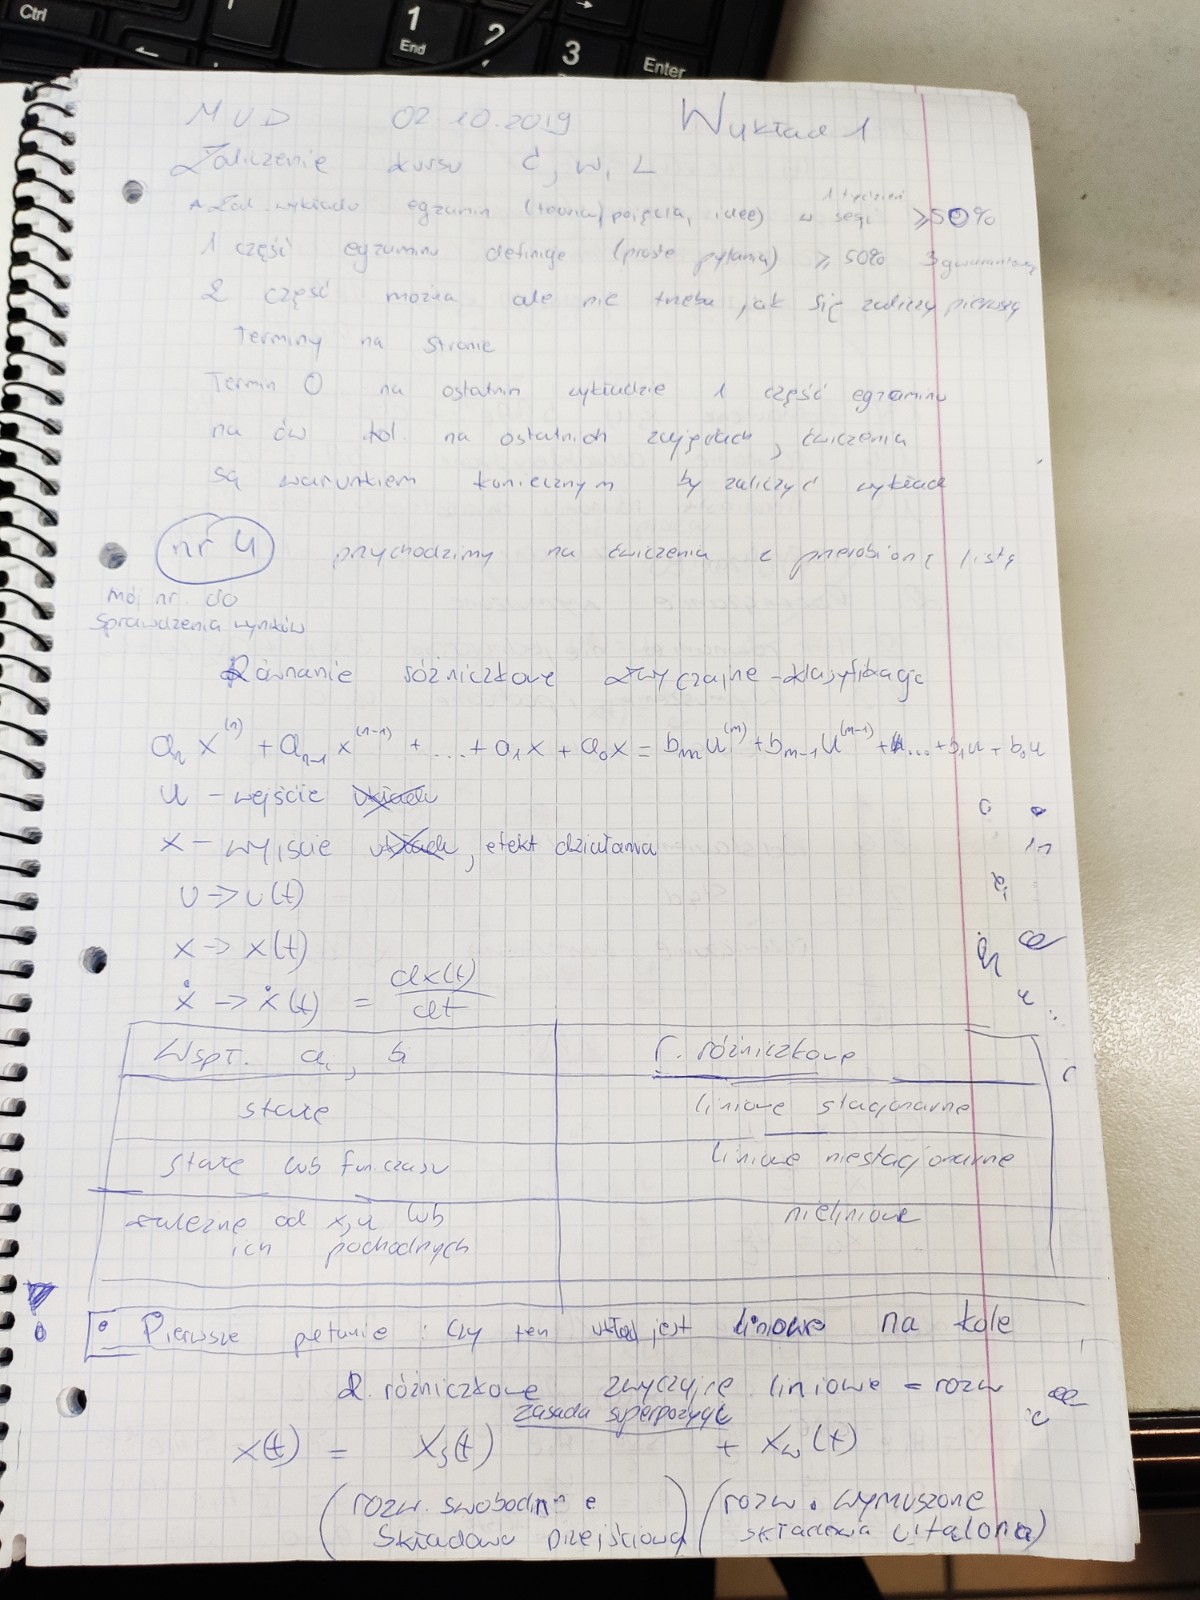 Ctrl
1
End
2
3
Enter
MUD 02.10.2019 Wykład 1
Zaliczenie kursu Ć, W, L
1 tydzień
Zal. wykładu egzamin (teoria, pojęcia, idee) w sesji ≥50%
1 część egzaminu definicje (proste pytania) ≥ 50% 3 gwarantowane
2 część można ale nie trzeba jak się zaliczy pierwszą
Terminy na stronie
Termin 0 na ostatnim wykładzie 1 część egzaminu
na ćw kol. na ostatnich zajęciach, ćwiczenia
są warunkiem koniecznym by zaliczyć wykład
nr 4 przychodzimy na ćwiczenia z przerobioną listą
mój nr. do
sprawdzenia wyników
Równanie różniczkowe zwyczajne - klasyfikacja
aₙ x⁽ⁿ⁾ + aₙ₋₁ x⁽ⁿ⁻¹⁾ + ... + a₁x + a₀x = bₘu⁽ᵐ⁾ + bₘ₋₁u⁽ᵐ⁻¹⁾ + ... + b₁u + b₀u
u - wejście układu
x - wyjście układu, efekt działania
u -> u(t)
x -> x(t)
ẋ -> ẋ(t) = dx(t)/dt
Wspł. a, b r. różniczkowe
stałe liniowe stacjonarne
stałe lub fun. czasu liniowe niestacjonarne
zależne od x, u lub nieliniowe
ich pochodnych
Pierwsze pytanie : czy ten układ jest liniowe na kole
R. różniczkowe zwyczajne liniowe = rozw
zasada superpozycji
x(t) = xₛ(t) + x_w(t)
(rozw. swobodne (rozw. wymuszone
składowa przejściowa) składowa ustalona)